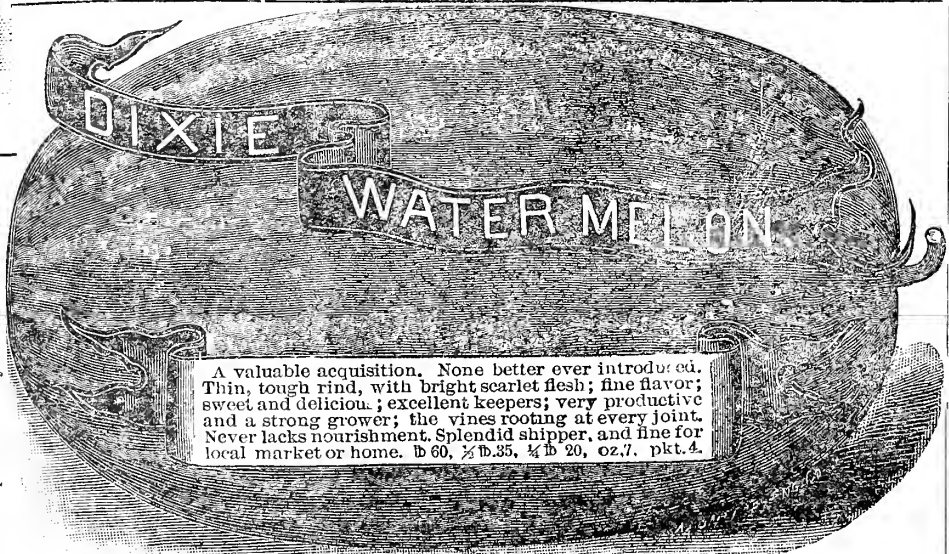 DIXIE
WATER MELON
A valuable acquisition. None better ever introduced.
Thin, tough rind, with bright scarlet flesh; fine flavor;
sweet and delicious; excellent keepers; very productive
and a strong grower; the vines rooting at every joint.
Never lacks nourishment. Splendid shipper, and fine for
local market or home. ℔ 60, ½ ℔.35, ¼ ℔ 20, oz.7. pkt.4.